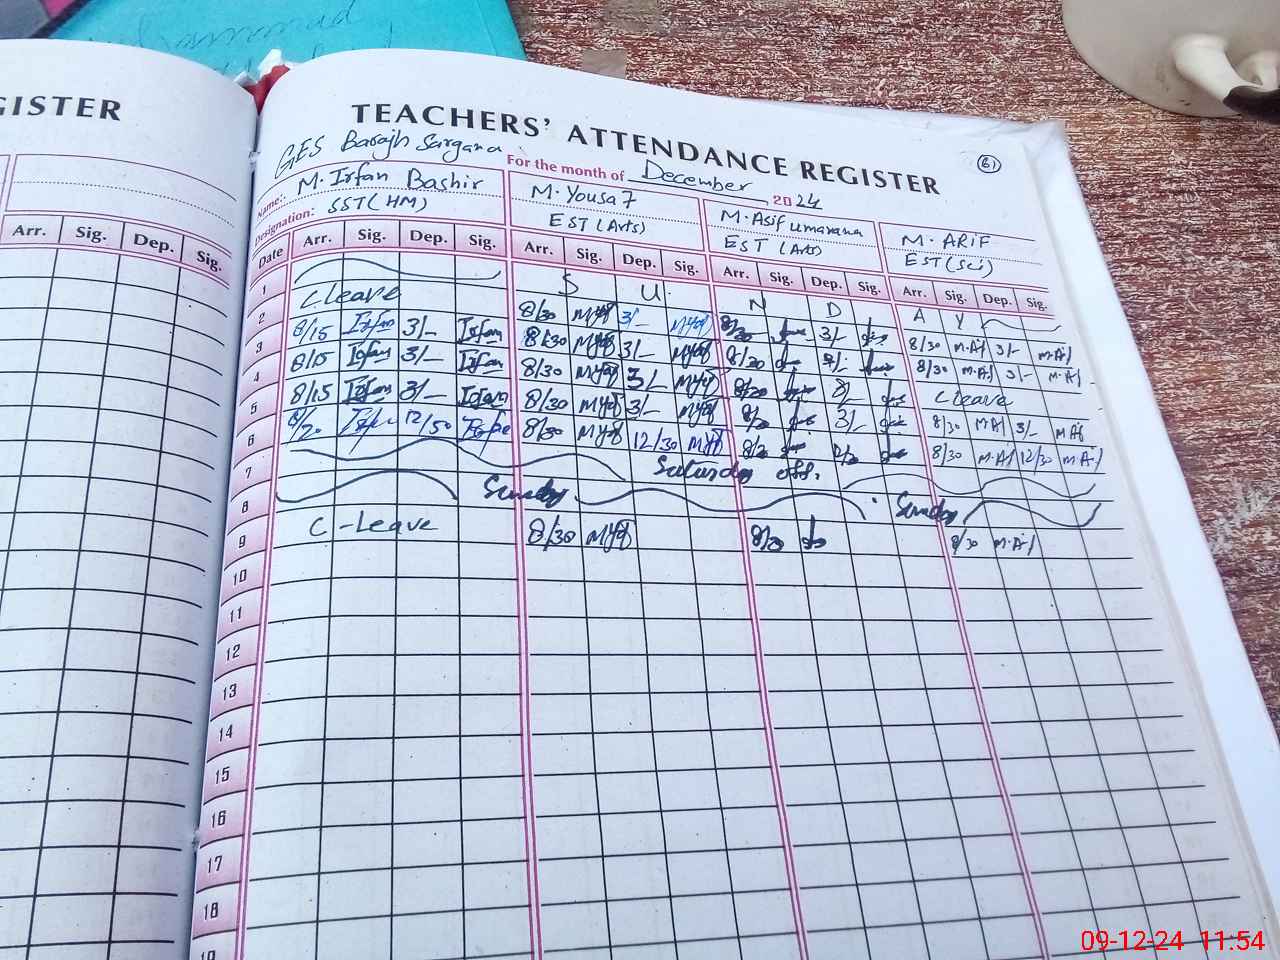 GISTER
TEACHERS' ATTENDANCE REGISTER
61
GES Barajh Sargana
For the month of December 2024
Name: M. Irfan Bashir M. Yousaf M. Asif Umarana M. ARIF
Designation: SST (HM) EST (Arts) EST (Arts) EST (Sci)
Arr. Sig. Dep. Sig.
Date Arr. Sig. Dep. Sig. Arr. Sig. Dep. Sig. Arr. Sig. Dep. Sig. Arr. Sig. Dep. Sig.
1 S U N D A Y
2 C leave 8/30 Myf 3/- Myf 8/30 3/- 8/30 M.Af 3/- M.Af
3 8/15 Irfan 3/- Irfan 8/30 Myf 3/- Myf 8/30 3/- 8/30 M.Af 3/- M.Af
4 8/15 Irfan 3/- Irfan 8/30 Myf 3/- Myf 8/30 3/- C leave
5 8/15 Irfan 3/- Irfan 8/30 Myf 3/- Myf 8/30 3/- 8/30 M.Af 3/- M.Af
6 8/20 Irfan 12/50 Irfan 8/30 Myf 12/30 Myf 8/30 8/30 M.Af 12/30 M.Af
7 Saturday off.
8 Sunday Sunday
9 C-Leave 8/30 Myf 8/30 8/30 M.Af
10
11
12
13
14
15
16
17
18
19
09-12-24 11:54